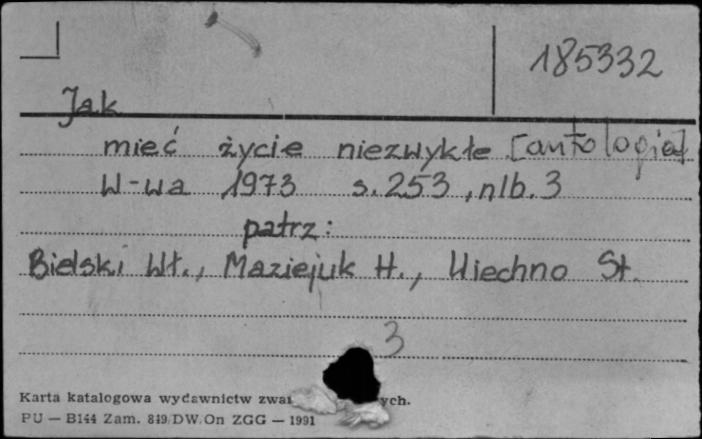 185332
Jak
mieć życie niezwykłe [antologia]
W-wa 1973 s. 253, nlb. 3
patrz:
Bielski Wł., Maziejuk H., Uiechno St.
3
Karta katalogowa wydawnictw zwar ych.
PU — B144 Zam. 849/DW/On ZGG — 1991